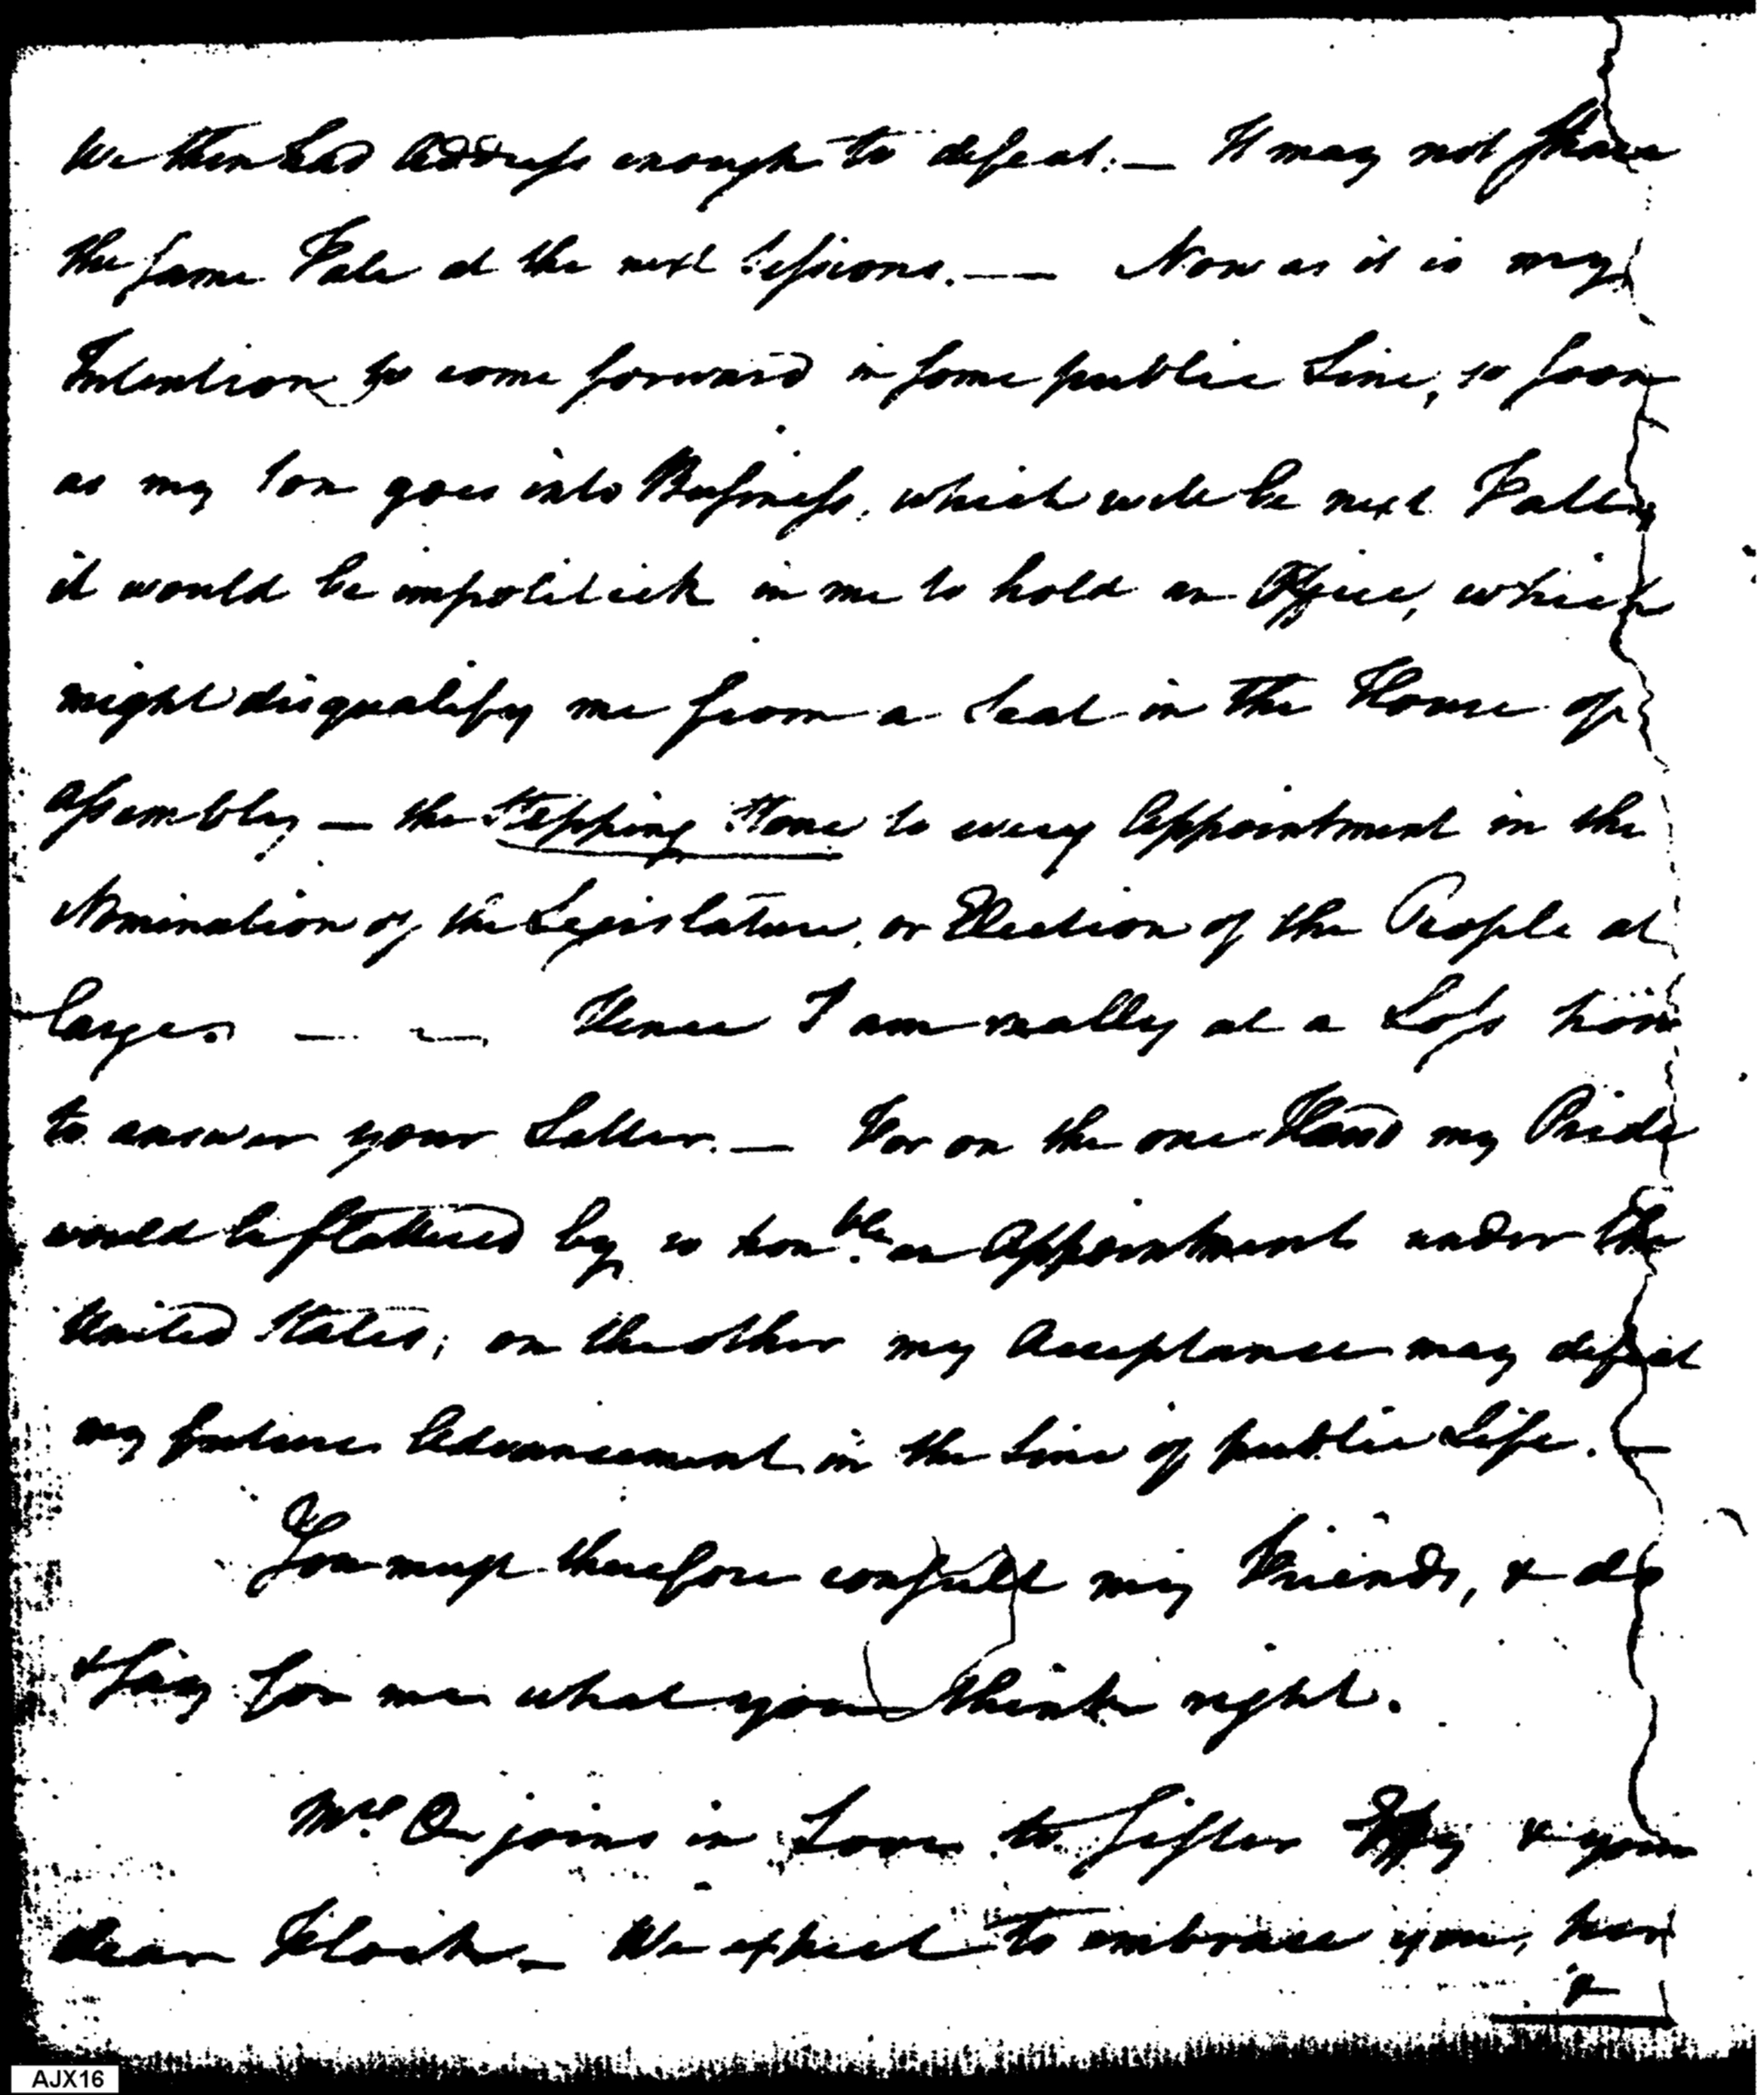 We then had Address enough to defeat. — It may not share
the same Fate at the next Sessions. — — Now as it is my
Intention to come forward in some public Line, so soon
as my Son goes into Business, which will be next Fall,
it would be impolitick in me to hold an Office, which
might disqualify me from a Seat in the House of
Assembly — the Stepping Stone to every Appointment in the
Nomination of the Legislature, or Election of the People at
large. — — Hence I am really at a Loss how
to answer your Letter. — For on the one Hand my Pride
would be flattered by so honble. an Appointment under the
United States; on the other my Acceptance may defeat
my future Advancement in the Line of public Life. —
You must therefore consult my Friends, & do
& say for me what you think right.
Mrs. O joins in Love to Sister Effy & your
dear Flock. — We expect to embrace you, her
&
AJX16